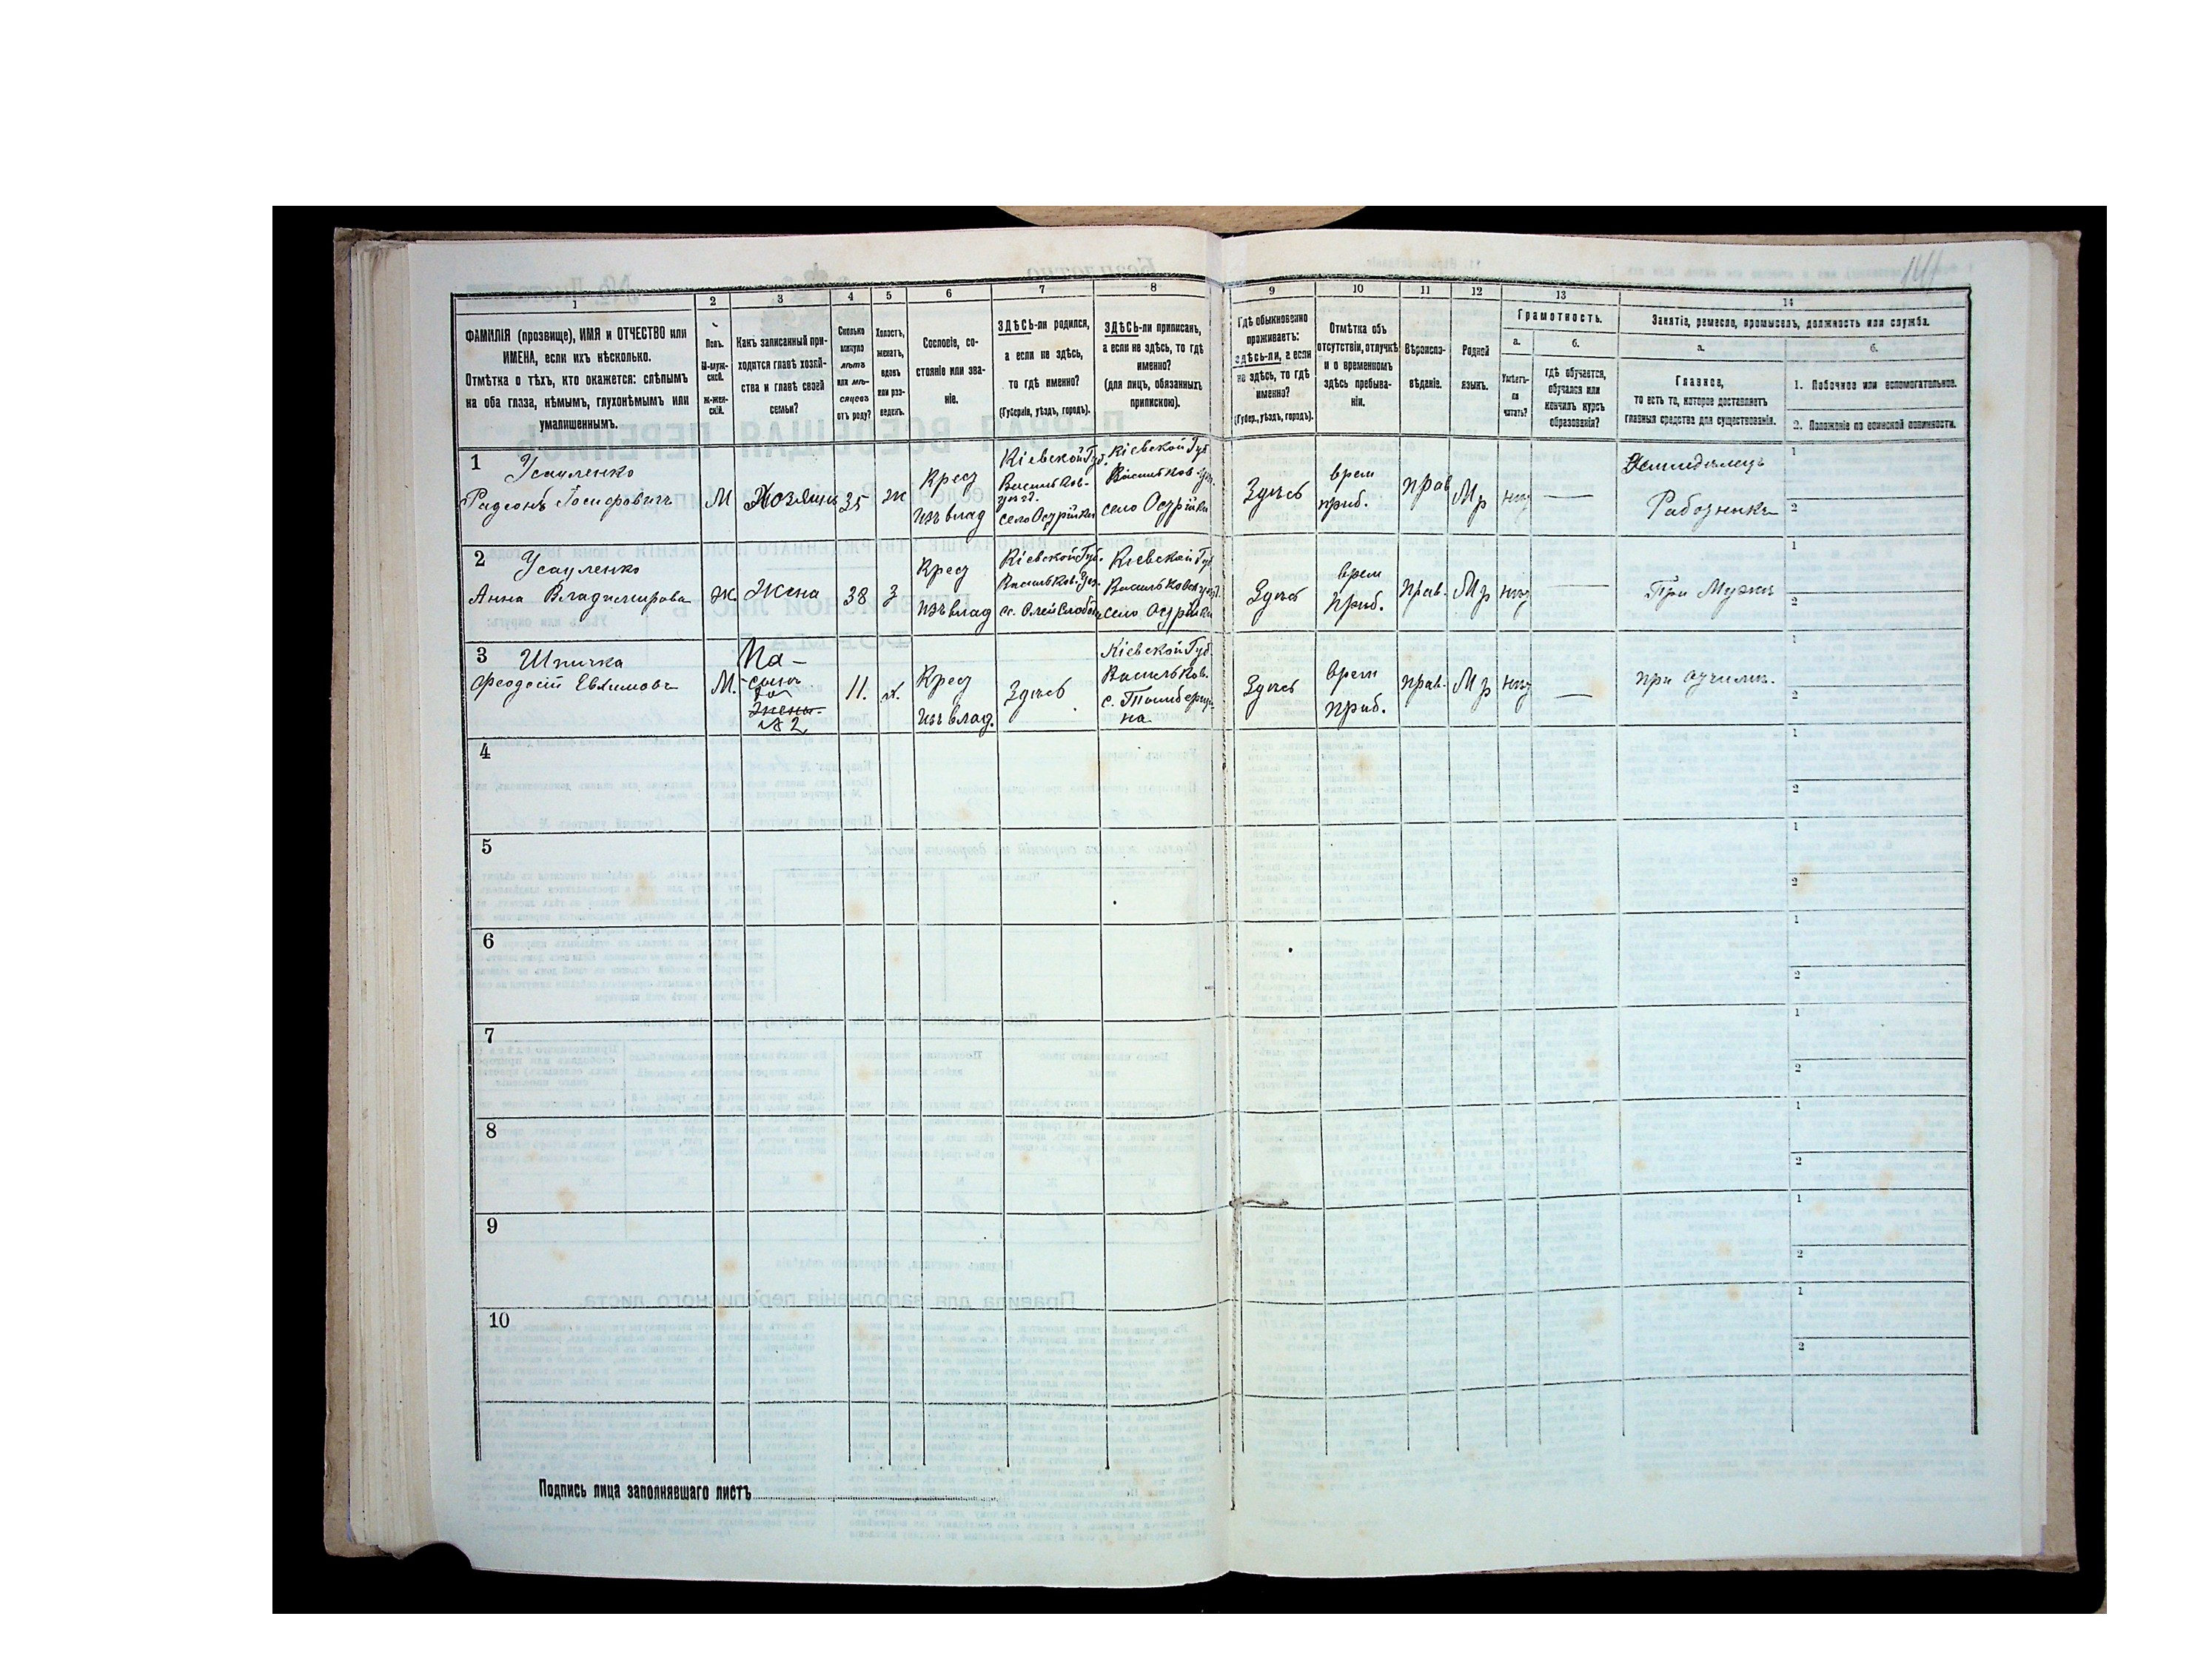 1
2
3
4
5
6
7
8
9
10
11
12
13
14
ФАМИЛІЯ (прозвище), ИМЯ и ОТЧЕСТВО или
ИМЕНА, если ихъ нѣсколько.
Отмѣтка о тѣхъ, кто окажется: слѣпымъ
на оба глаза, нѣмымъ, глухонѣмымъ или
умалишеннымъ.
Полъ.
М-муж-
ской.
Ж-жен-
скій.
Какъ записанный при-
ходится главѣ хозяй-
ства и главѣ своей
семьи?
Сколько
минуло
лѣтъ
или мѣ-
сяцевъ
отъ роду?
Холостъ,
женатъ,
вдовъ
или раз-
веденъ.
Сословіе, со-
стояніе или зва-
ніе.
ЗДѢСЬ-ли родился,
а если не здѣсь,
то гдѣ именно?
(Губернія, уѣздъ, городъ).
ЗДѢСЬ-ли приписанъ,
а если не здѣсь, то гдѣ
именно?
(для лицъ, обязанныхъ
припискою).
Гдѣ обыкновенно
проживаетъ:
здѣсь-ли, а если
не здѣсь, то гдѣ
именно?
(Губер., уѣздъ, городъ).
Отмѣтка объ
отсутствіи, отлучкѣ
и о временномъ
здѣсь пребыва-
ніи.
Вѣроиспо-
вѣданіе.
Родной
языкъ.
Грамотность.
а.
Умѣетъ-
ли
читать?
б.
гдѣ обучается,
обучался или
кончилъ курсъ
образованія?
Занятіе, ремесло, промыселъ, должность или служба.
а.
Главное,
то есть то, которое доставляетъ
главныя средства для существованія.
б.
1. Побочное или вспомогательное.
2. Положеніе по воинской повинности.
1
Усауленко
Радеонъ Іосифовичъ
М
Хозяинъ
35
ж
Крес
изъ влад
Кіевской Губ.
Васильков-
уѣзд.
село Острійки
Кіевской Губ
Васильков. уѣз.
село Острійки
Здѣсь
врем
приб.
прав
Мр
нѣт
—
Земледѣлецъ
Работникъ
1
2
2
Усауленко
Анна Владимирова
ж.
Жена
38
З
Крес
изъ влад
Кіевской Губ.
Васильков. Уез.
Кіевской Губ
Васильков уезд.
село Острійки
Здѣсь
врем
приб.
прав.
Мр
нѣт
—
При Мужѣ
1
2
3
Шпичка
Феодосій Евлимовъ
М.
Па-
сынъ
Жены
№ 2
11.
х.
Крес
изъ влад.
Здѣсь
Кіевской Губ.
Васильков.
Здѣсь
врем
приб.
прав.
Мр
нѣт
—
при отчимѣ.
1
2
4
1
2
5
1
2
6
1
2
7
1
2
8
1
2
9
1
2
10
1
2
Подпись лица заполнявшаго листъ